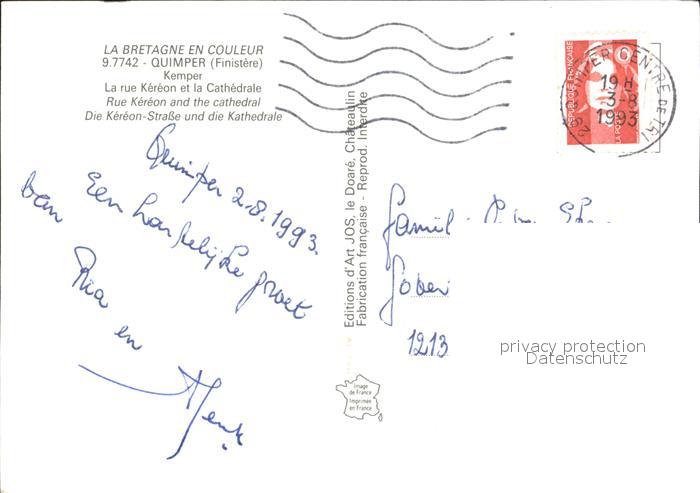 LA BRETAGNE EN COULEUR
9.7742 - QUIMPER (Finistère)
Kemper
La rue Kéréon et la Cathédrale
Rue Kéréon and the cathedral
Die Kéréon-Straße und die Kathedrale
Quimper 2.8.1993.
Een hartelijke groet
van
Ria en
Henk.
Editions d'Art JOS, le Doaré, Châteaulin
Fabrication française - Reprod. Interdite
Image
de France
Imprimée
en France
REPUBLIQUE FRANÇAISE
LA POSTE
CENTRE DE TRI
19 H
3-8
1993
1213
privacy protection
Datenschutz